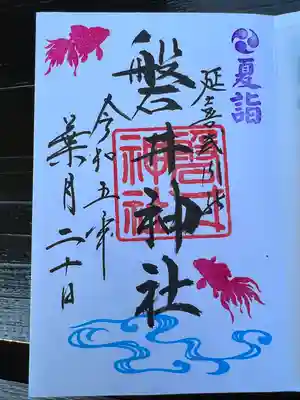 夏詣
延喜式内社
磐井神社
磐井
神社
令和五年
葉月二十日